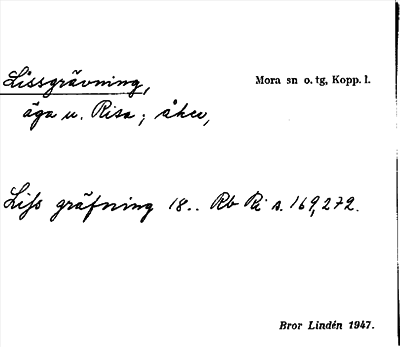 Lissgrävning, Mora sn o. tg, Kopp. l.
äga u. Risa; åker,
Lifs gräfning 18.. Rb Ri s. 169, 272.
Bror Lindén 1947.